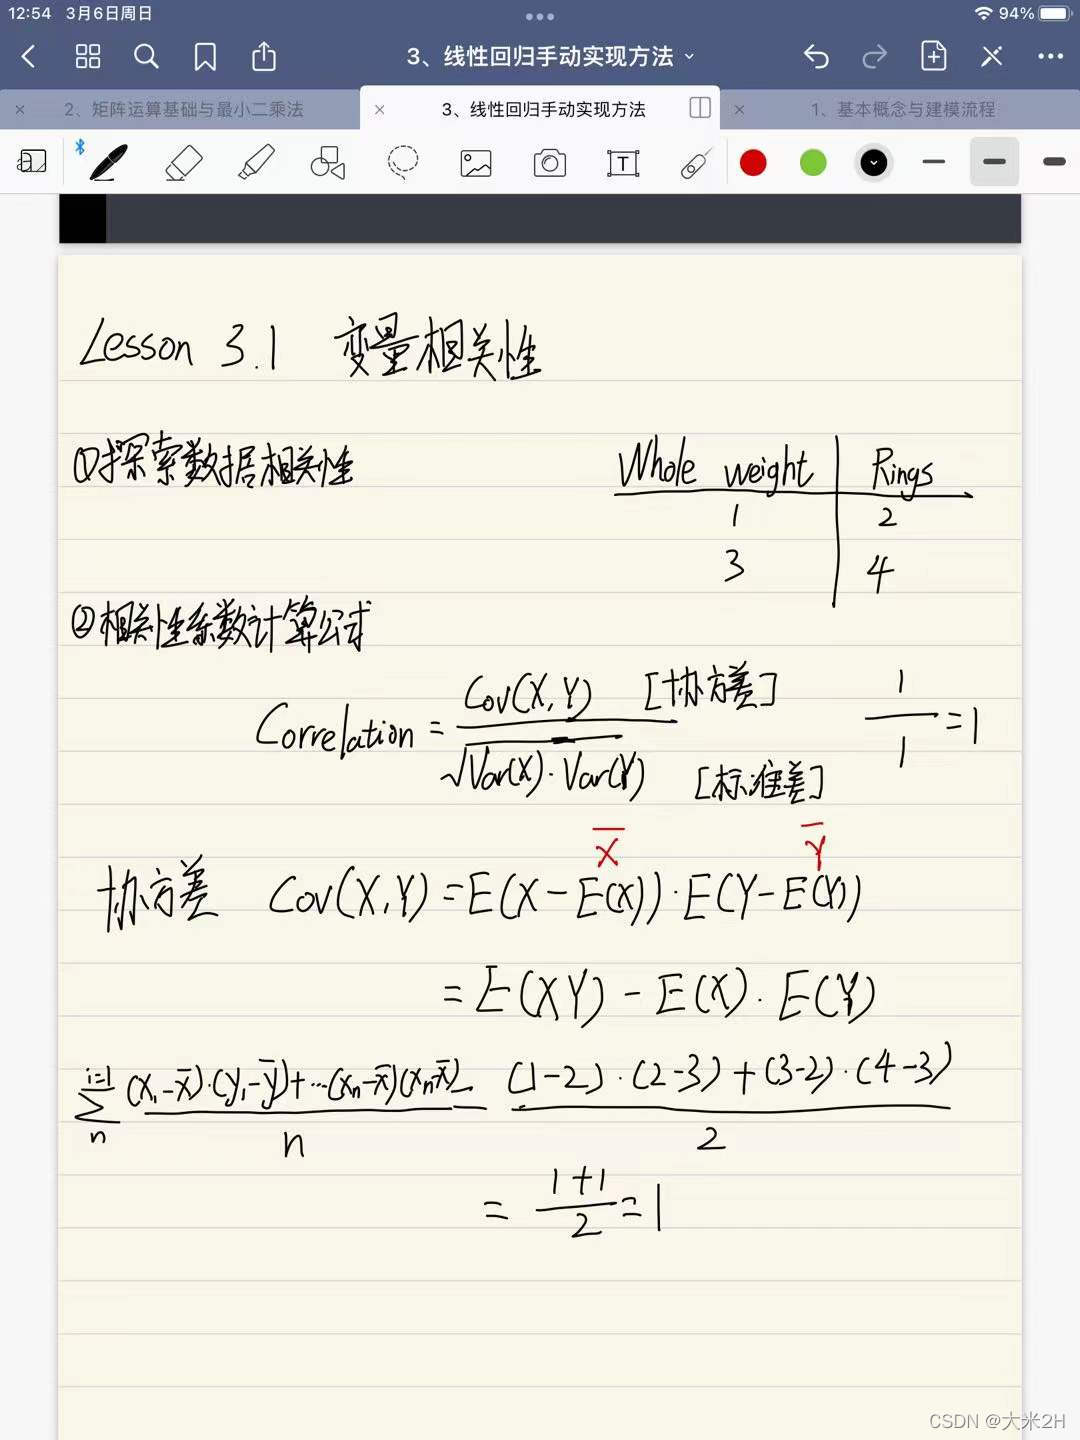 12:54 3月6日周日 94%
3、线性回归手动实现方法
2、矩阵运算基础与最小二乘法 3、线性回归手动实现方法 1、基本概念与建模流程
T
Lesson 3.1 变量相关性
①探索数据相关性
Whole weight Rings
1 2
3 4
②相关性系数计算公式
Correlation = Cov(X,Y) / √Var(X)·Var(Y) [协方差] [标准差] 1/1 = 1
X̅ Y̅
协方差 Cov(X,Y) = E(X-E(X))·E(Y-E(Y))
= E(XY) - E(X)·E(Y)
i=1 ∑ n (x₁-x̅)·(y₁-y̅)+…(xn-x̅)(xn x̅) / n = (1-2)·(2-3)+(3-2)·(4-3) / 2
= 1+1 / 2 = 1
CSDN @大米2H